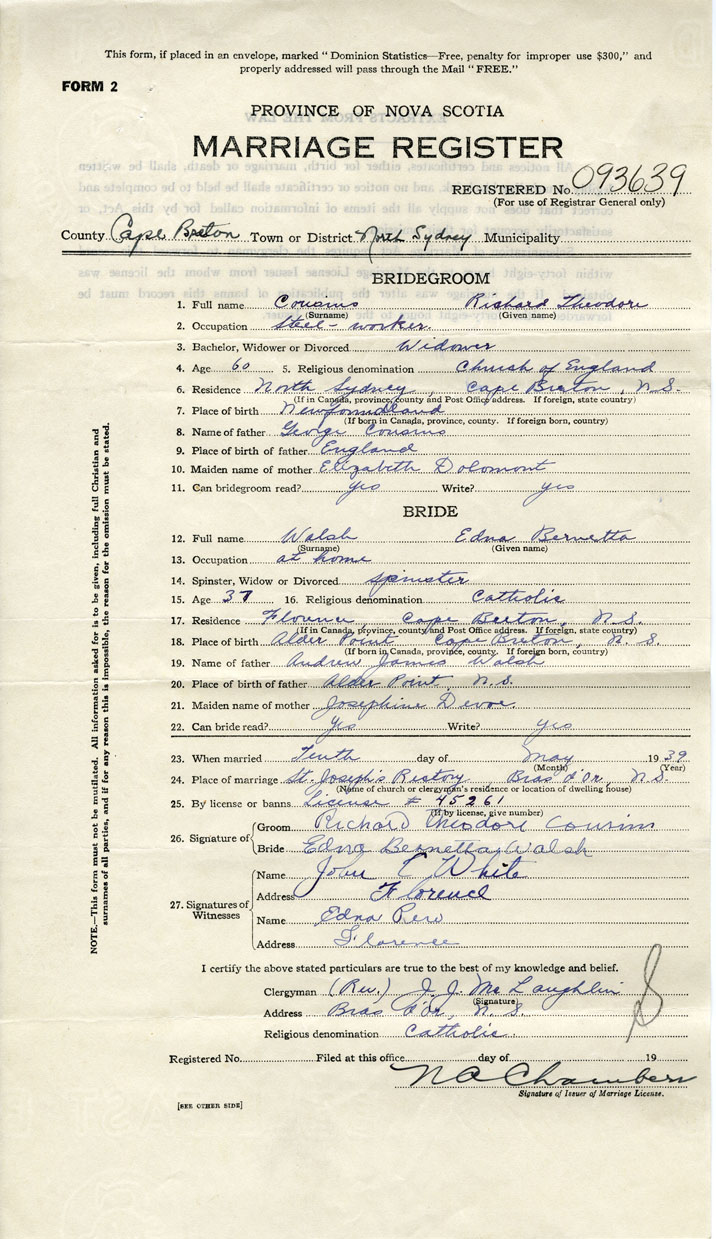 This form, if placed in an envelope, marked "Dominion Statistics—Free, penalty for improper use $300," and
properly addressed will pass through the Mail "FREE."
FORM 2
PROVINCE OF NOVA SCOTIA
MARRIAGE REGISTER
REGISTERED No. 093639
(For use of Registrar General only)
County Cape Breton Town or District North Sydney Municipality
BRIDEGROOM
1. Full name Cousins Richard Theodore
(Surname) (Given name)
2. Occupation Steel-worker
3. Bachelor, Widower or Divorced Widower
4. Age 60 5. Religious denomination Church of England
6. Residence North Sydney, Cape Breton, N.S.
(If in Canada, province, county and Post Office address. If foreign, state country)
7. Place of birth Newfoundland
(If born in Canada, province, county. If foreign born, country)
8. Name of father George Cousins
9. Place of birth of father England
10. Maiden name of mother Elizabeth Dolomont
11. Can bridegroom read? yes Write? yes
BRIDE
12. Full name Walsh Edna Bernetta
(Surname) (Given name)
13. Occupation at home
14. Spinster, Widow or Divorced spinster
15. Age 37 16. Religious denomination Catholic
17. Residence Florence, Cape Berton, N.S.
(If in Canada, province, county and Post Office address. If foreign, state country)
18. Place of birth Alder Point Cape Breton, N.S.
(If born in Canada, province, county. If foreign born, country)
19. Name of father Andrew James Walsh
20. Place of birth of father Alder Point, N.S.
21. Maiden name of mother Josephine Devoe
22. Can bride read? Yes Write? Yes
23. When married Tenth day of May 1939
(Month) (Year)
24. Place of marriage St. Joseph's Rectory Bras d'Or, N.S.
(Name of church or clergyman's residence or location of dwelling house)
25. By license or banns License # 45261
(If by license, give number)
26. Signature of
Groom Richard Theodore Cousins
Bride Edna Bernetta Walsh
27. Signatures of Witnesses
Name John C White
Address Florence
Name Edna Rew
Address Florence
I certify the above stated particulars are true to the best of my knowledge and belief.
Clergyman (Rev.) J. J. McLaughlin
(Signature)
Address Bras d'Or, N.S.
Religious denomination Catholic
Registered No. Filed at this office day of 19
N A Chambers
Signature of Issuer of Marriage License.
[SEE OTHER SIDE]
NOTE.—This form must not be mutilated. All information asked for is to be given, including full Christian and
surnames of all parties, and if for any reason this is impossible, the reason for the omission must be stated.